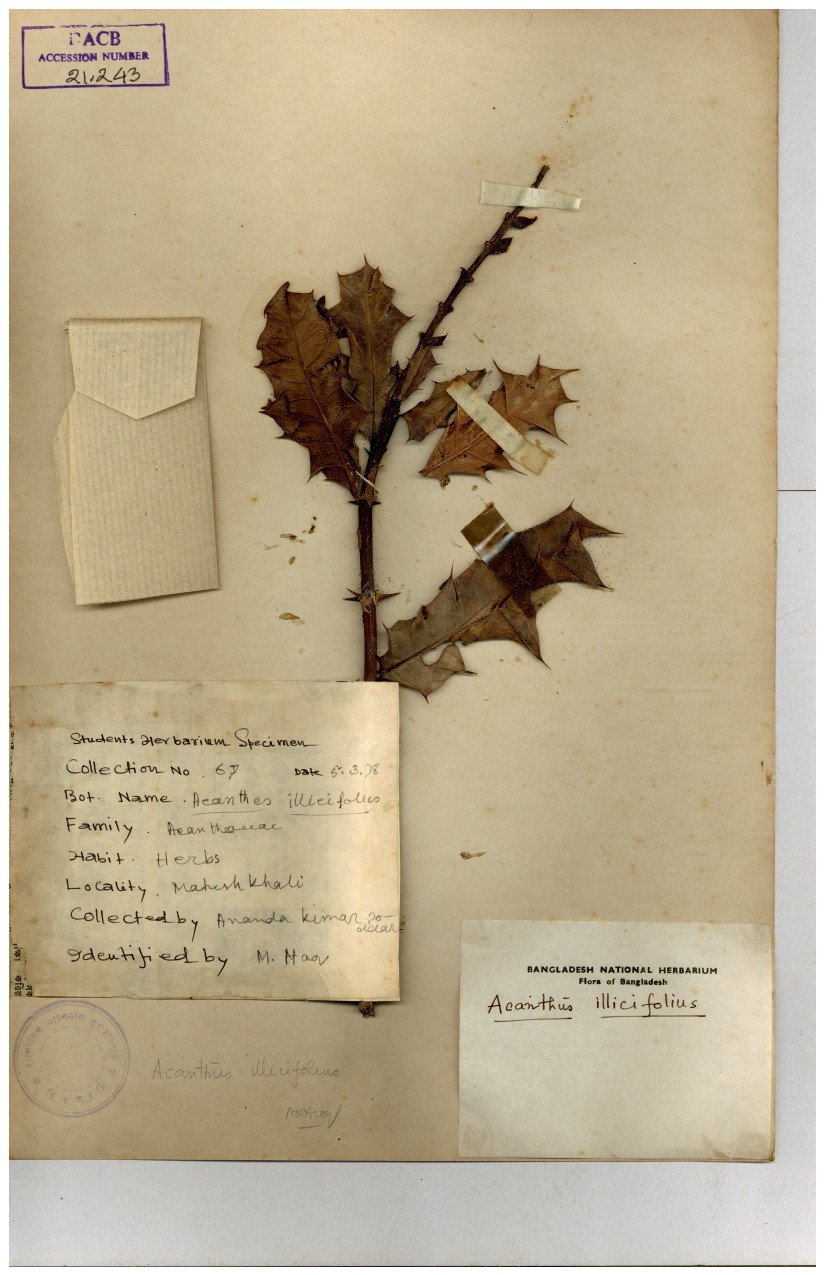 DACB
ACCESSION NUMBER
21,243
Students Herbarium Specimen
Collection No. 67 Date 5.3.78
Bot. Name. Acanthus illicifolius
Family. Acanthaceae
Habit. Herbs
Locality. Maheshkhali
Collected by Ananda kumar
Identified by M. Haq
BANGLADESH NATIONAL HERBARIUM
Flora of Bangladesh
Acanthus illicifolius
Acanthus illicifolius